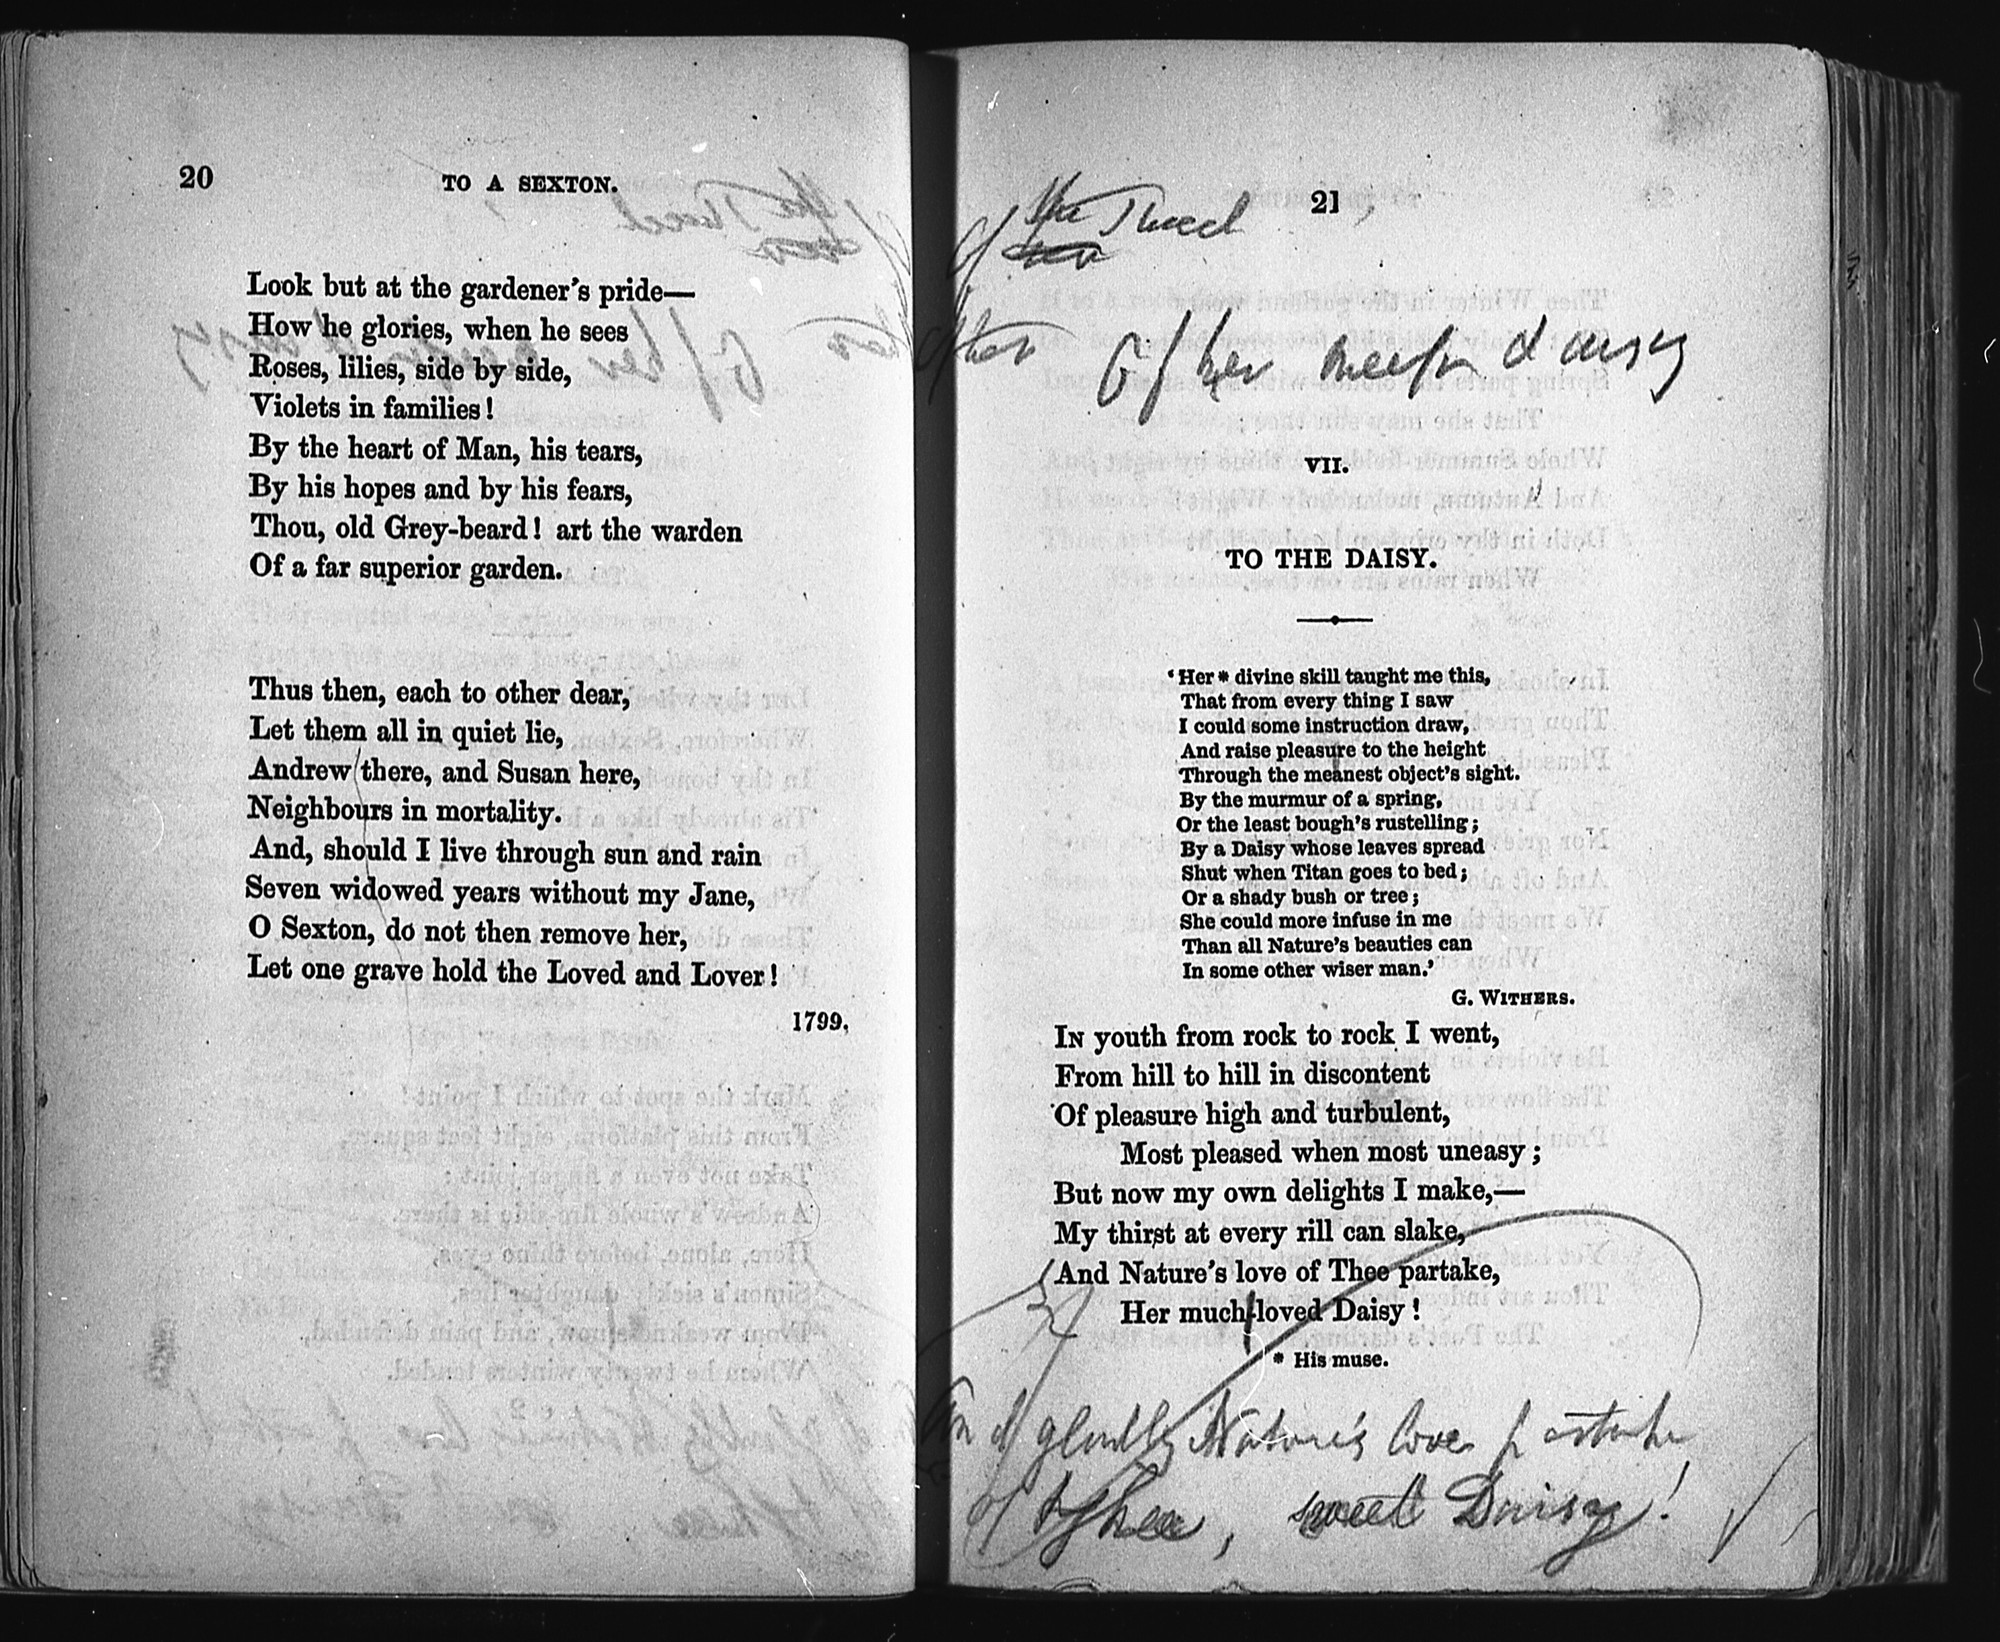 20
TO A SEXTON.
Look but at the gardener's pride—
How he glories, when he sees
Roses, lilies, side by side,
Violets in families!
By the heart of Man, his tears,
By his hopes and by his fears,
Thou, old Grey-beard! art the warden
Of a far superior garden.
Thus then, each to other dear,
Let them all in quiet lie,
Andrew there, and Susan here,
Neighbours in mortality.
And, should I live through sun and rain
Seven widowed years without my Jane,
O Sexton, do not then remove her,
Let one grave hold the Loved and Lover!
1799.
21
Of the Tweed
Of her
Of her meek daisy
VII.
TO THE DAISY.
'Her* divine skill taught me this,
That from every thing I saw
I could some instruction draw,
And raise pleasure to the height
Through the meanest object's sight.
By the murmur of a spring,
Or the least bough's rustelling;
By a Daisy whose leaves spread
Shut when Titan goes to bed;
Or a shady bush or tree;
She could more infuse in me
Than all Nature's beauties can
In some other wiser man.'
G. WITHERS.
IN youth from rock to rock I went,
From hill to hill in discontent
Of pleasure high and turbulent,
Most pleased when most uneasy;
But now my own delights I make,—
My thirst at every rill can slake,
And Nature's love of Thee partake,
Her much-loved Daisy!
* His muse.
And gladly Nature's love partake
of Thee, sweet Daisy!